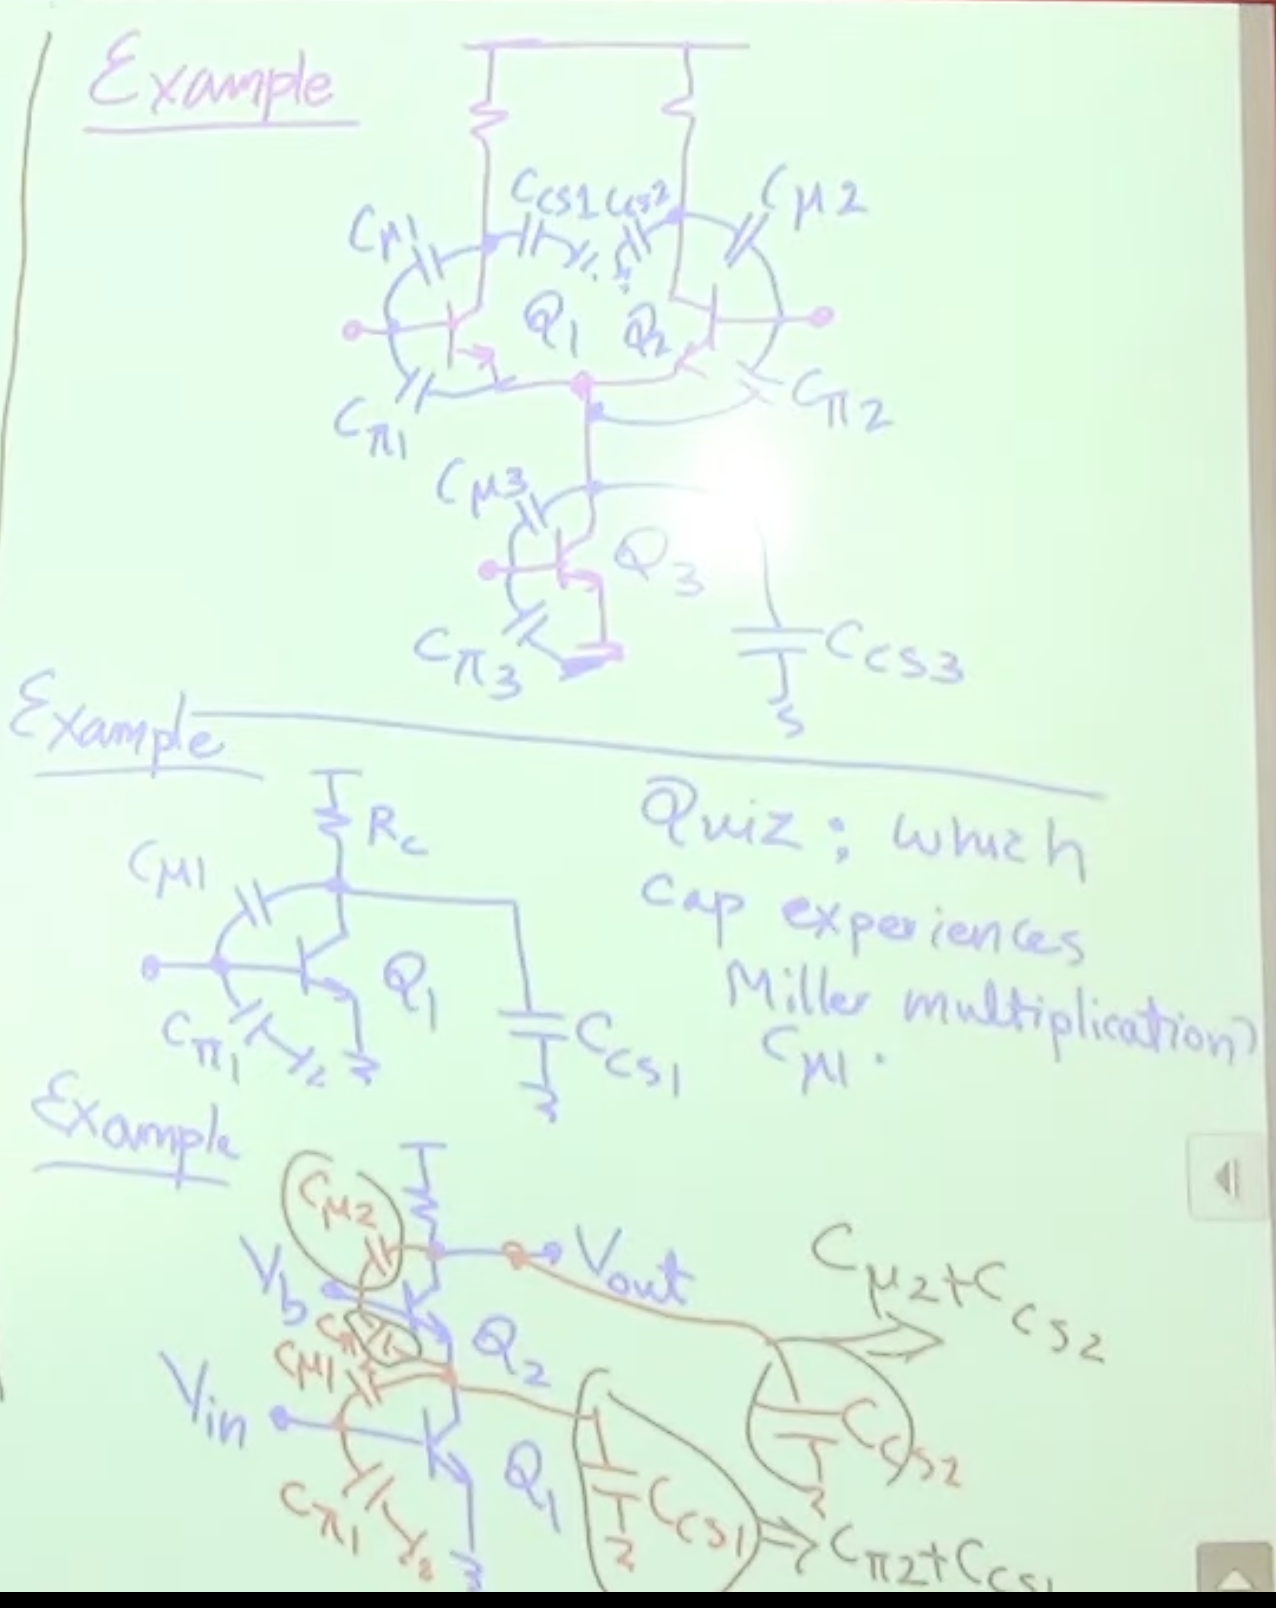 Example
Cμ1 Ccs1 Ccs2 Cμ2
Q1 Q2
Cπ1 Cπ2
Cμ3
Q3
Cπ3 Ccs3
Example
Rc
Cμ1
Q1
Cπ1 Ccs1
Quiz: which
Cap experiences
Miller multiplication?
Cμ1.
Example
Cμ2
Vb Vout
Cμ2+Ccs2
Q2
Cμ1
Vin
Ccs2
Q1
Cπ1
Ccs1
Cπ2+Ccs1